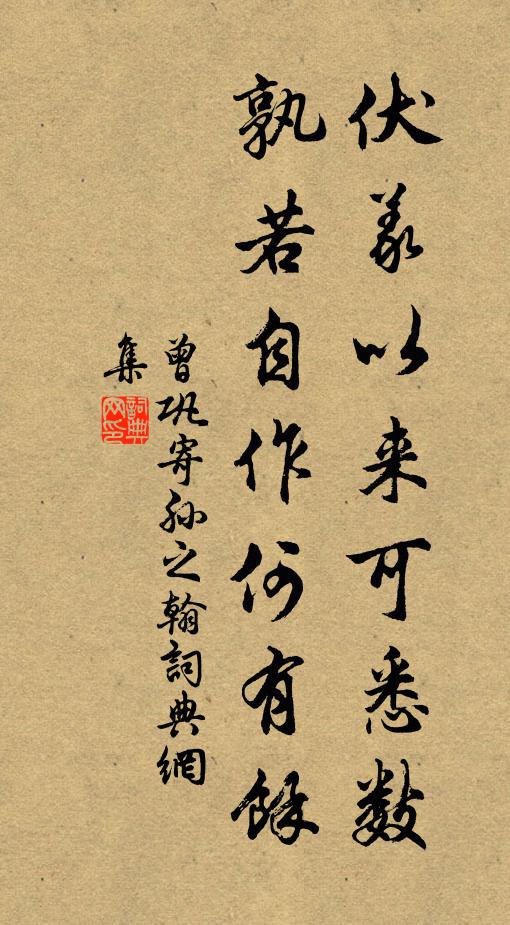 伏羲以来可悉数
孰若自作何有餘
曾巩寄孙之翰詞典網
集
詞典網印